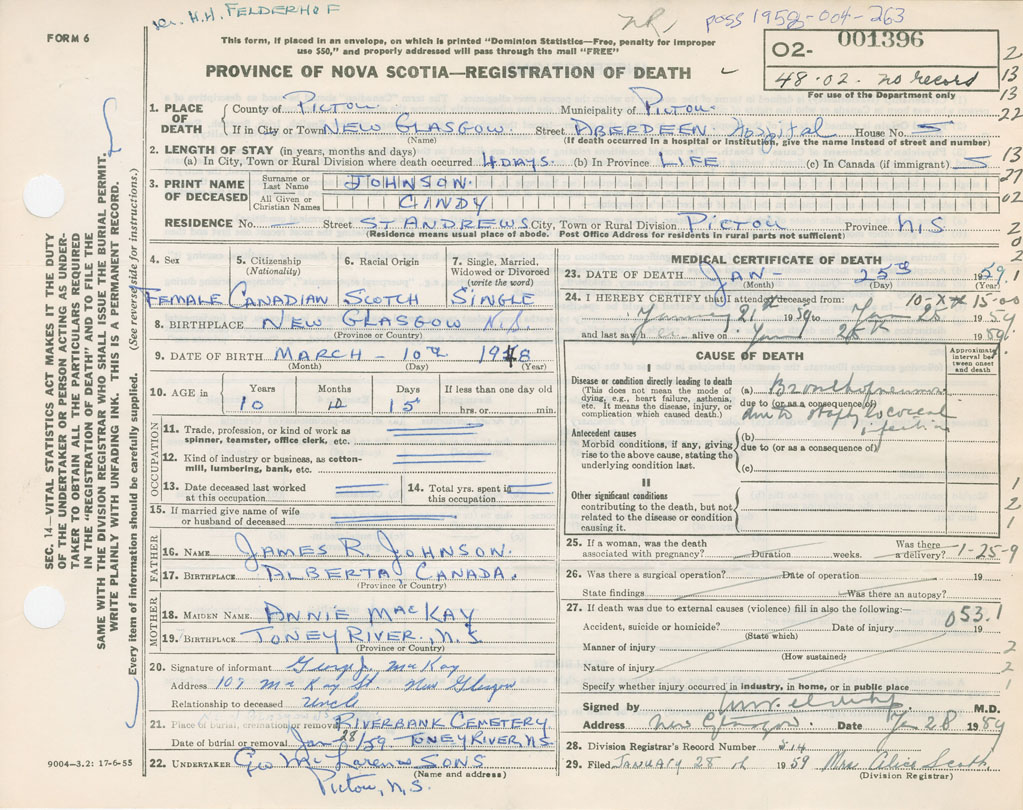 H. H. FELDERHOF
NR, poss 1958-004-263
FORM 6
This form, if placed in an envelope, on which is printed "Dominion Statistics—Free, penalty for improper
use $50," and properly addressed will pass through the mail "FREE"
02- 001396
48-02- no record
For use of the Department only
PROVINCE OF NOVA SCOTIA—REGISTRATION OF DEATH
SEC. 14—VITAL STATISTICS ACT MAKES IT THE DUTY
OF THE UNDERTAKER OR PERSON ACTING AS UNDER-
TAKER TO OBTAIN ALL THE PARTICULARS REQUIRED
IN THE "REGISTRATION OF DEATH" AND TO FILE THE
SAME WITH THE DIVISION REGISTRAR WHO SHALL ISSUE THE BURIAL PERMIT.
WRITE PLAINLY WITH UNFADING INK. THIS IS A PERMANENT RECORD.
Every item of information should be carefully supplied. (See reverse side for instructions.)
1. PLACE OF DEATH County of PICTOU Municipality of PICTOU
If in City or Town NEW GLASGOW Street ABERDEEN Hospital House No.
(Name) (If death occurred in a hospital or Institution, give the name instead of street and number)
2. LENGTH OF STAY (in years, months and days)
(a) In City, Town or Rural Division where death occurred 4 DAYS. (b) In Province LIFE (c) In Canada (if immigrant)
3. PRINT NAME OF DECEASED Surname or Last Name JOHNSON
All Given or Christian Names CINDY
RESIDENCE No. — Street ST ANDREWS City, Town or Rural Division PICTOU Province N.S
(Residence means usual place of abode. Post Office Address for residents in rural parts not sufficient)
4. Sex 5. Citizenship (Nationality) 6. Racial Origin 7. Single, Married, Widowed or Divorced (write the word)
FEMALE CANADIAN SCOTCH SINGLE
8. BIRTHPLACE NEW GLASGOW N.S.
(Province or Country)
9. DATE OF BIRTH MARCH - 10TH 1948
(Month) (Day) (Year)
10. AGE in Years Months Days If less than one day old
10 15 hrs. or min.
OCCUPATION
11. Trade, profession, or kind of work as
spinner, teamster, office clerk, etc.
12. Kind of industry or business, as cotton-
mill, lumbering, bank, etc.
13. Date deceased last worked at this occupation 14. Total yrs. spent in this occupation
15. If married give name of wife
or husband of deceased
FATHER
16. NAME JAMES R. JOHNSON.
17. BIRTHPLACE ALBERTA CANADA.
(Province or Country)
MOTHER
18. MAIDEN NAME ANNIE MACKAY
19. BIRTHPLACE TONEY RIVER, N.S
(Province or Country)
20. Signature of informant George J. MacKay
Address 109 MacKay St. New Glasgow
Relationship to deceased Uncle
21. Place of burial, cremation or removal RIVERBANK CEMETERY
Date of burial or removal Jan 28/59 TONEY RIVER, N.S
22. UNDERTAKER Geo McLaren SONS
(Name and address)
Pictou, N.S.
9004-3.2: 17-6-55
MEDICAL CERTIFICATE OF DEATH
23. DATE OF DEATH JAN - 25TH 1959
(Month) (Day) (Year)
24. I HEREBY CERTIFY that I attended deceased from:
January 21 1959 to Jan 25 1959
and last saw her alive on Jan 25th 1959
CAUSE OF DEATH
Approximate interval between onset and death
I
Disease or condition directly leading to death
(This does not mean the mode of dying, e.g., heart failure, asthenia, etc. It means the disease, injury, or complication which caused death.)
(a) Bronchopneumonia
due to (or as a consequence of)
due to staphylococcal
infection
Antecedent causes
Morbid conditions, if any, giving rise to the above cause, stating the underlying condition last.
(b)
due to (or as a consequence of)
(c)
II
Other significant conditions
contributing to the death, but not related to the disease or condition causing it.
25. If a woman, was the death associated with pregnancy? Duration weeks. Was there a delivery? 1-25-9
26. Was there a surgical operation? Date of operation 19
State findings Was there an autopsy?
27. If death was due to external causes (violence) fill in also the following:—
053.1
Accident, suicide or homicide? Date of injury 19
(State which)
Manner of injury
(How sustained)
Nature of injury
Specify whether injury occurred in industry, in home, or in public place
Signed by M.D.
Address New Glasgow. Date Jan 28 1959
28. Division Registrar's Record Number # 14
29. Filed January 28 th 1959 Mrs Alice Scott
(Division Registrar)